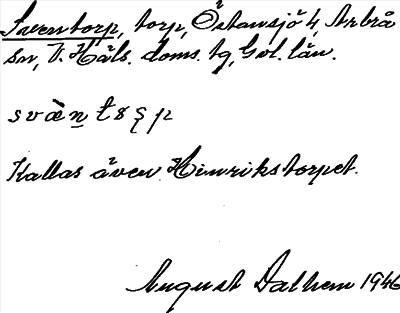 Sventorp, torp, Östansjö 4, Arbrå
sn, V. Häls. doms. tg, Gvl. län.
svæ̀n̠ tsp
Kallas även Hinrikstorpet.
August Dalhem 1946